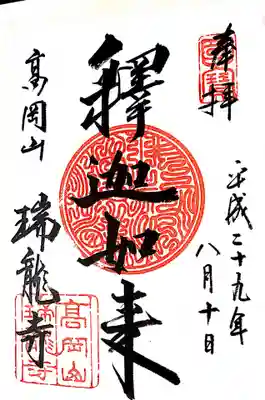 奉拝
平成二十九年
八月十日
釋迦如来
高岡山
瑞龍寺
高岡山
瑞龍寺